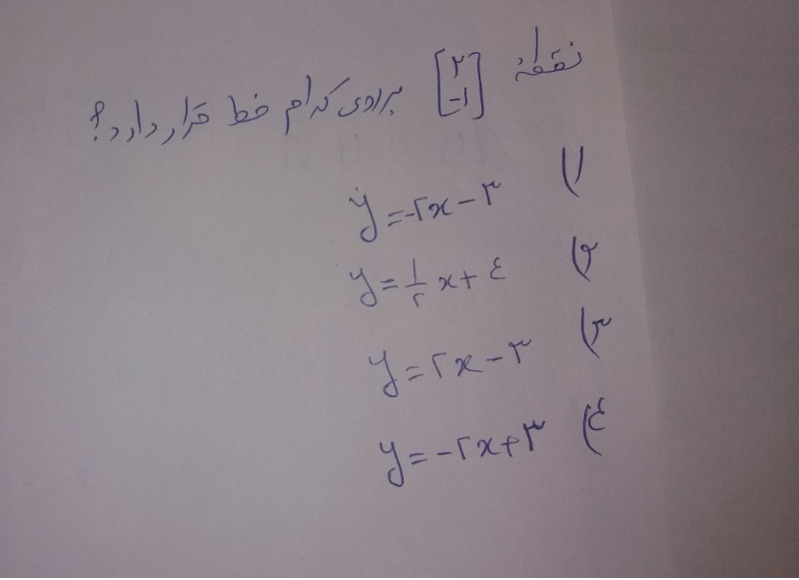 نقطهٔ [۲ -۱] بر روی کدام خط قرار دارد؟
۱) y=-۲x-۳
۲) y=۱/۲x+۴
۳) y=۲x-۳
۴) y=-۲x+۳